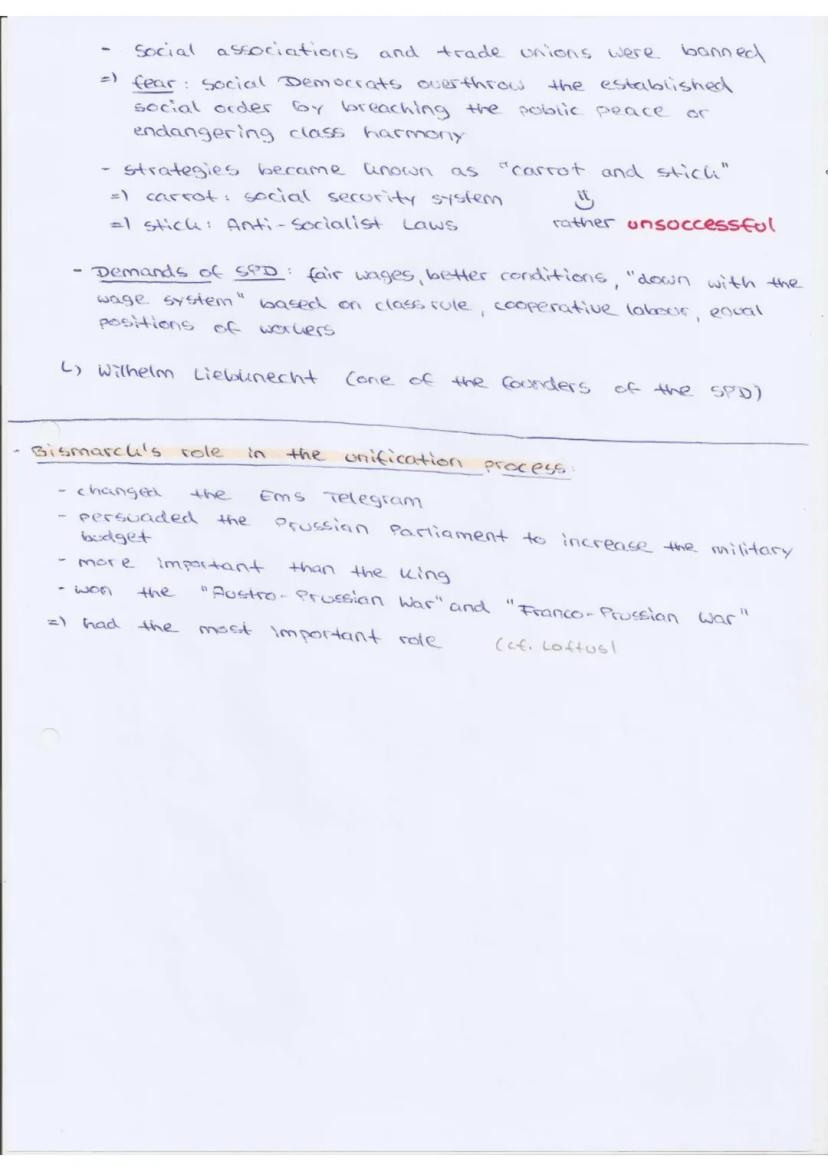 - Social associations and trade unions were banned
=) fear: Social Democrats overthrow the established
social order by breaching the public peace or
endangering class harmony
- strategies became known as "carrot and stick"
=) carrot: social security system
=) stick: Anti-Socialist Laws
rather unsuccessful
- Demands of SPD: fair wages, better conditions, "down with the
wage system" based on class rule, cooperative labour, equal
positions of workers
↳ Wilhelm Liebknecht (one of the founders of the SPD)
- Bismarck's role in the unification process:
- changed the Ems Telegram
- persuaded the Prussian Parliament to increase the military
budget
- more important than the King
- won the "Austro-Prussian War" and "Franco-Prussian War"
=) had the most important role (cf. Loftus)